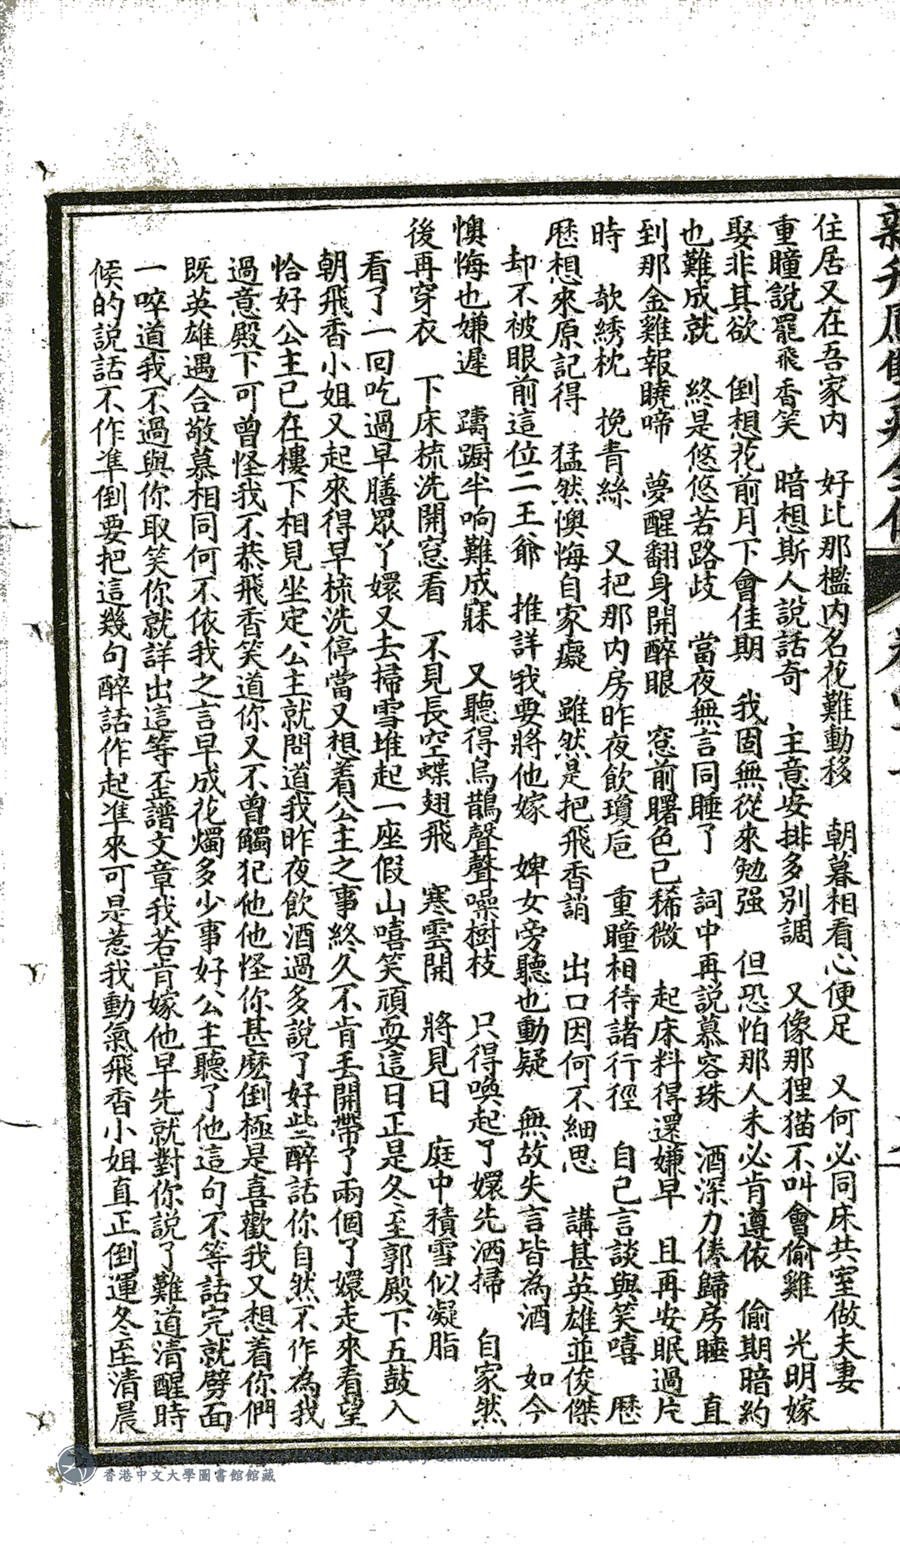 住居又在吾家內　好比那檻內名花難動移　朝暮相看心便足　又何必同床共室做夫妻
重瞳說罷飛香笑　暗想斯人說話奇　主意安排多別調　又像那狸猫不叫會偷雞　光明嫁
娶非其欲　倒想花前月下會佳期　我固無從來勉强　但恐怕那人未必肯遵依　偷期暗約
也難成就　終是悠悠若路歧　當夜無言同睡了　詞中再說慕容珠　酒深力倦歸房睡　直
到那金雞報曉啼　夢醒翻身開醉眼　窓前曙色已稀微　起床料得還嫌早　且再安眠過片
時　欹綉枕　挽青絲　又把那內房昨夜飲瓊巵　重瞳相待諸行徑　自己言談與笑嘻　歷
歷想來原記得　猛然懊悔自家癡　雖然是把飛香誚　出口因何不細思　講甚英雄並俊傑
却不被眼前這位二王爺　推詳我要將他嫁　婢女旁聽也動疑　無故失言皆為酒　如今
懊悔也嫌遲　躊蹰半响難成寐　又聽得烏鵲聲聲噪樹枝　只得喚起了嬛先洒掃　自家然
後再穿衣　下床梳洗開窓看　不見長空蝶翅飛　寒雲開　將見日　庭中積雪似凝脂
看了一回吃過早膳眾丫嬛又去掃雪堆起一座假山嘻笑頑耍這日正是冬至郭殿下五鼓入
朝飛香小姐又起來得早梳洗停當又想着公主之事終久不肯丟開帶了兩個了嬛走來看望
恰好公主已在樓下相見坐定公主就問道我昨夜飲酒過多說了好些醉話你自然不作為我
過意殿下可曾怪我不恭飛香笑道你又不曾觸犯他他怪你甚麽倒極是喜歡我又想着你們
既英雄遇合敬慕相同何不依我之言早成花燭多少事好公主聽了他這句不等話完就劈面
一啐道我不過與你取笑你就詳出這等歪譜文章我若肯嫁他早先就對你說了難道清醒時
候的說話不作準倒要把這幾句醉話作起準來可是惹我動氣飛香小姐直正倒運冬至清晨
香港中文大學圖書館館藏